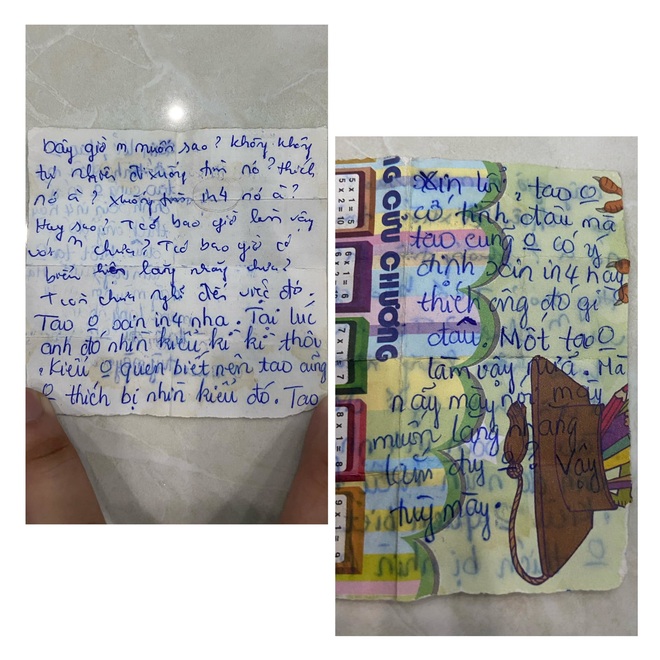 bây giờ m muốn sao? Không không
tự nhiên đi xuống tìm nó? thích
nó à? xuống in4 nó à?
Hay sao? T có bao giờ làm vậy
với m chưa? T có bao giờ có
biểu hiện lăng nhăng chưa?
T còn chưa nghĩ đến việc đó
Tao O xin in4 nha. Tại lúc
anh đó nhìn kiểu kì kì thôi
. Kiểu O quen biết nên tao cũng
O thích bị nhìn kiểu đó. Tao
Xin lỗi, tao O
cố tình đâu mà
tao cũng O có ý
định xin in4 hay
thích ông đó gì
đâu. Mốt tao O
làm vậy nữa. Mà
nãy mày nói mày
muốn lăng nhăng
lắm đúng ? Vậy
thùy mày.
NG CỬU CHƯƠNG
5 x 1 = 5
5 x 2 = 10
6 x 1 = 6
7 x 1 = 7
8 x 1 = 8
9 x 1 = 9